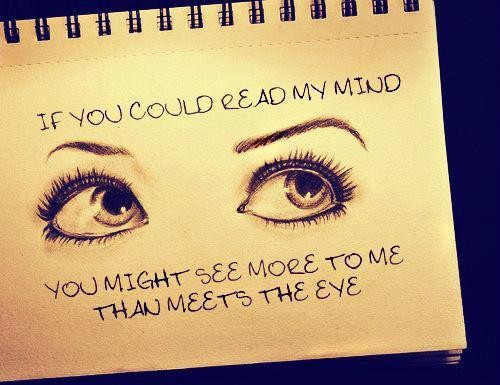 IF YOU COULD READ MY MIND
YOU MIGHT SEE MORE TO ME
THAN MEETS THE EYE